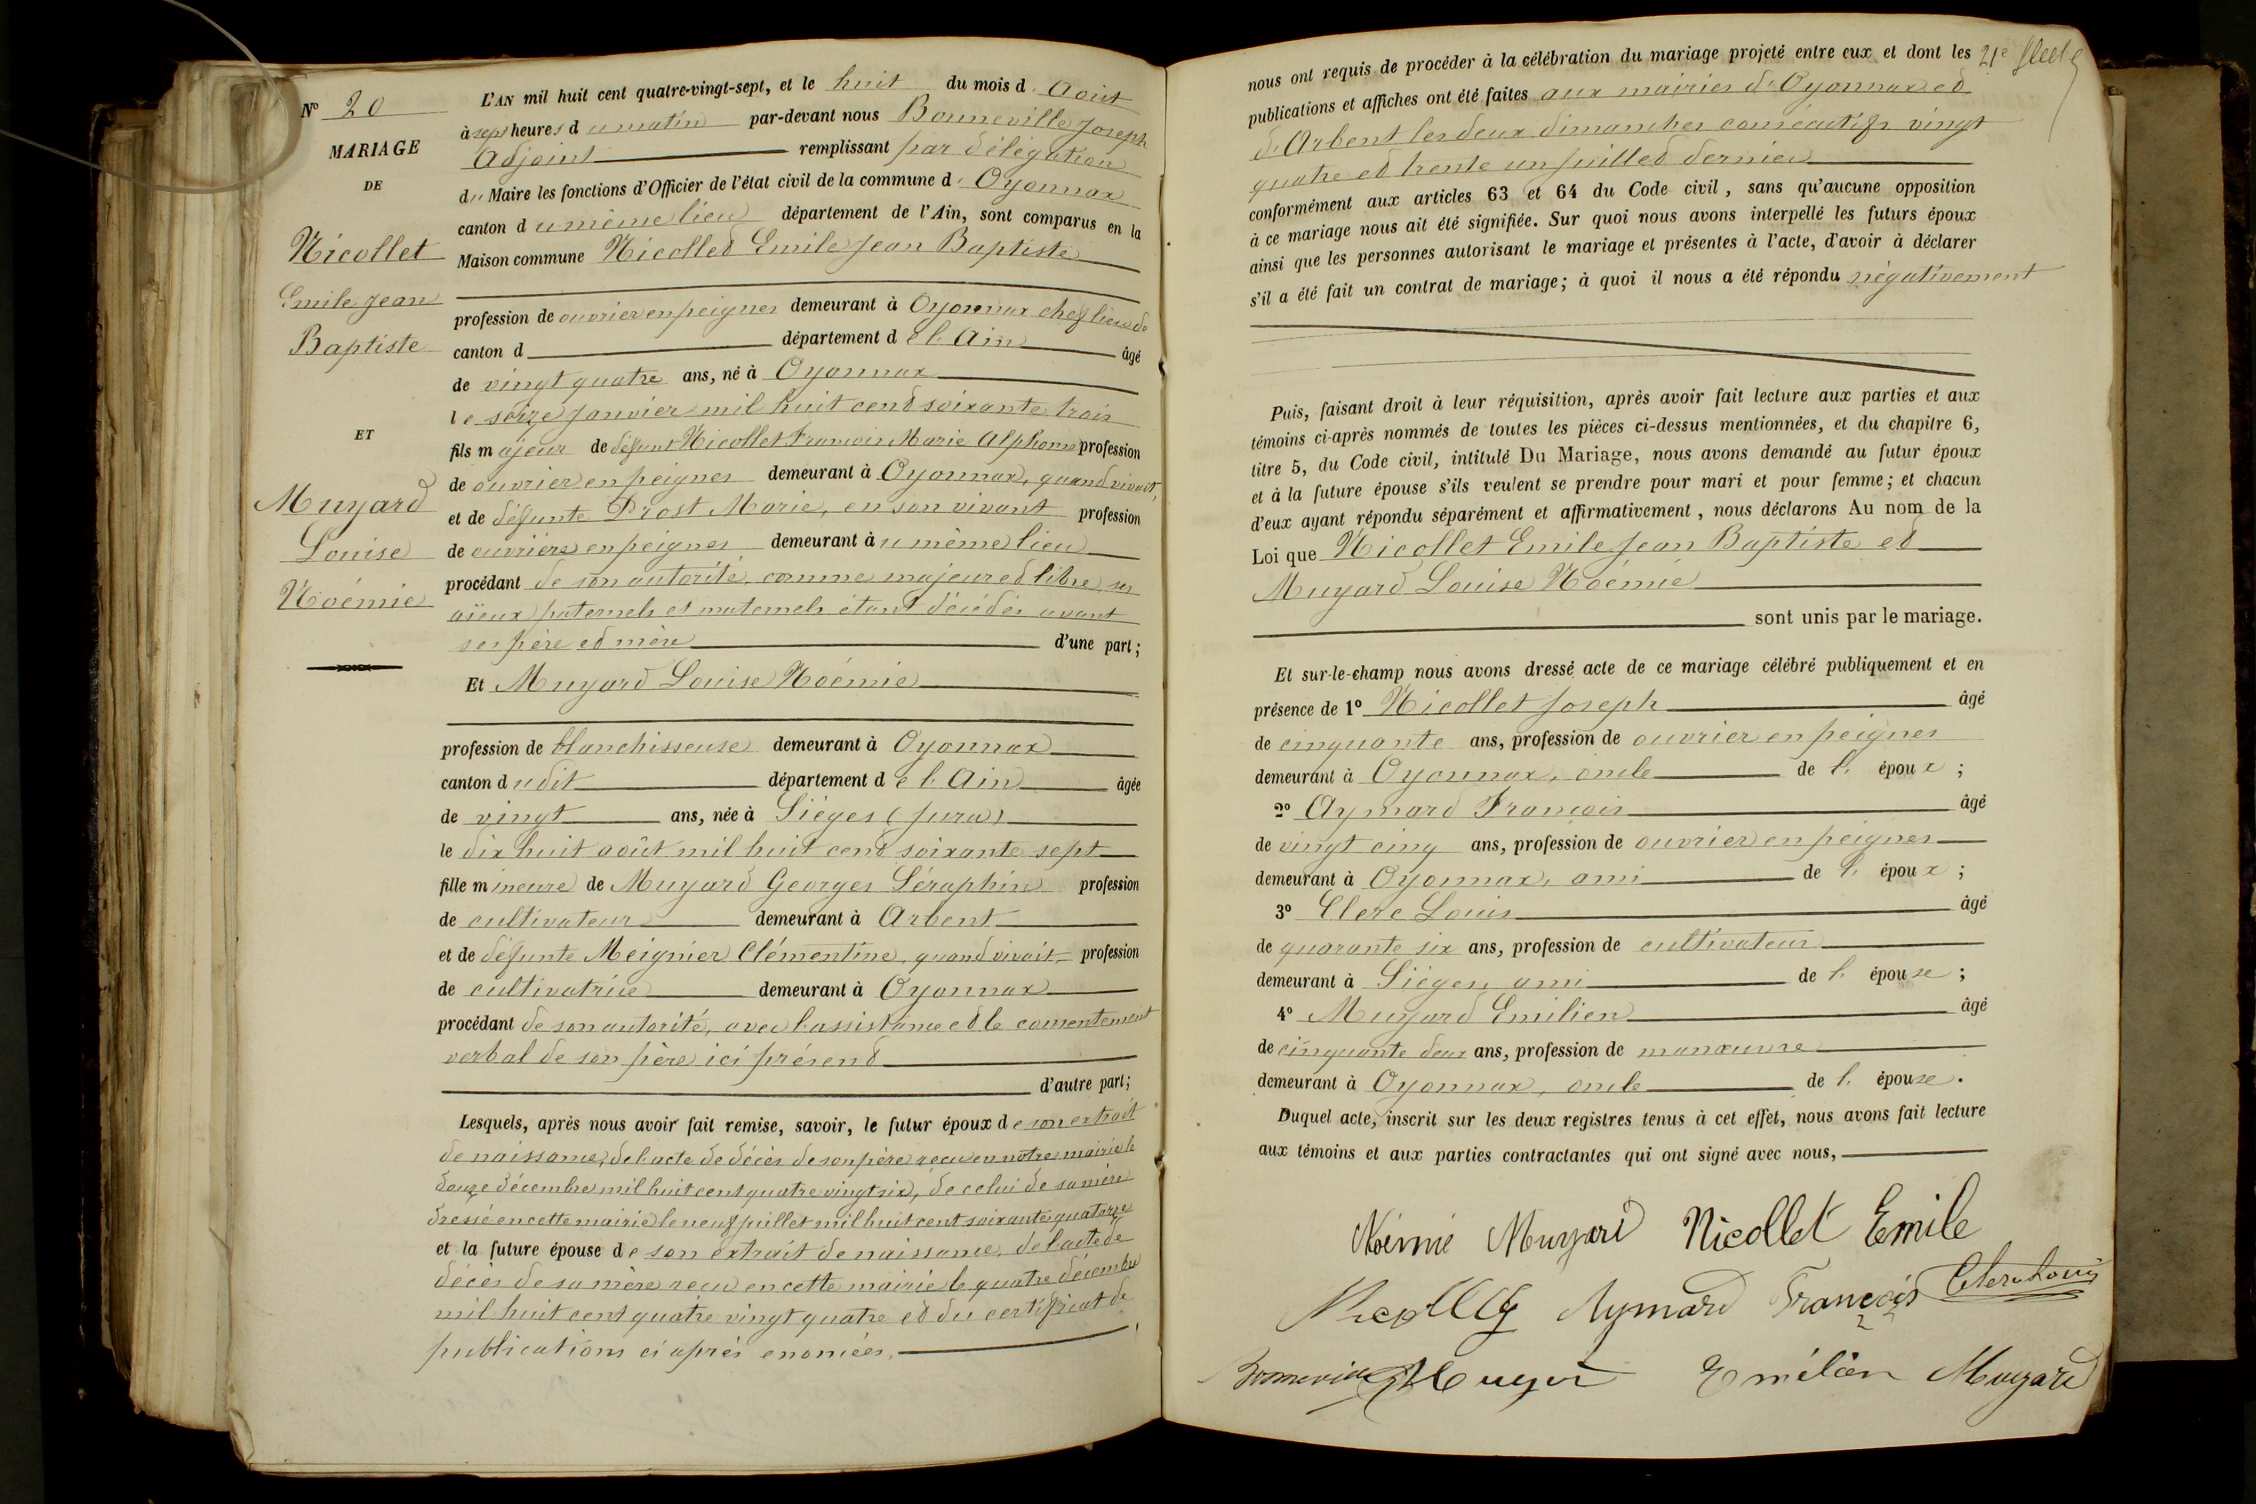 N° 20
MARIAGE
DE
Nicollet
Emile Jean
Baptiste
ET
Muyard
Louise
Noémie
L'AN mil huit cent quatre-vingt-sept, et le huit du mois d' Août
à sept heures du matin par-devant nous Bonneville Joseph
Adjoint remplissant par délégation
du Maire les fonctions d'Officier de l'état civil de la commune d' Oyonnax
canton du même lieu département de l'Ain, sont comparus en la
Maison commune Nicollet Emile Jean Baptiste
profession de ouvrier en peignes demeurant à Oyonnax chef lieu de
canton d département de l'Ain âgé
de vingt quatre ans, né à Oyonnax
le seize janvier mil huit cent soixante trois
fils majeur de défunt Nicollet François Marie Alphonse profession
de ouvrier en peignes demeurant à Oyonnax, quand vivait,
et de défunte Prost Marie, en son vivant profession
de ouvrière en peignes demeurant au même lieu
procédant de son autorité, comme majeur et libre, ses
aïeux paternels et maternels étant décédés avant
ses père et mère d'une part;
Et Muyard Louise Noémie
profession de blanchisseuse demeurant à Oyonnax
canton dudit département de l'Ain âgée
de vingt ans, née à Siéges (Jura)
le dix huit août mil huit cent soixante sept
fille mineure de Muyard Georges Séraphin profession
de cultivateur demeurant à Arbent
et de défunte Meignier Clémentine, quand vivait profession
de cultivatrice demeurant à Oyonnax
procédant de son autorité, avec l'assistance et le consentement
verbal de son père ici présent
d'autre part;
Lesquels, après nous avoir fait remise, savoir, le futur époux de son extrait
de naissance, de l'acte de décès de son père reçu en notre mairie le
douze décembre mil huit cent quatre vingt six, de celui de sa mère
dressé en cette mairie le neuf juillet mil huit cent soixante quatorze
et la future épouse de son extrait de naissance, de l'acte de
décès de sa mère reçu en cette mairie le quatre décembre
mil huit cent quatre vingt quatre et du certificat de
publications ci après énoncées,
nous ont requis de procéder à la célébration du mariage projeté entre eux et dont les 21e
publications et affiches ont été faites aux mairies d'Oyonnax et
d'Arbent les deux dimanches consécutifs vingt
quatre et trente un juillet dernier
conformément aux articles 63 et 64 du Code civil, sans qu'aucune opposition
à ce mariage nous ait été signifiée. Sur quoi nous avons interpellé les futurs époux
ainsi que les personnes autorisant le mariage et présentes à l'acte, d'avoir à déclarer
s'il a été fait un contrat de mariage; à quoi il nous a été répondu négativement
Puis, faisant droit à leur réquisition, après avoir fait lecture aux parties et aux
témoins ci-après nommés de toutes les pièces ci-dessus mentionnées, et du chapitre 6,
titre 5, du Code civil, intitulé Du Mariage, nous avons demandé au futur époux
et à la future épouse s'ils veulent se prendre pour mari et pour femme; et chacun
d'eux ayant répondu séparément et affirmativement, nous déclarons Au nom de la
Loi que Nicollet Emile Jean Baptiste et
Muyard Louise Noémie
sont unis par le mariage.
Et sur-le-champ nous avons dressé acte de ce mariage célébré publiquement et en
présence de 1° Nicollet Joseph âgé
de cinquante ans, profession de ouvrier en peignes
demeurant à Oyonnax, oncle de l'époux;
2° Aymard François âgé
de vingt cinq ans, profession de ouvrier en peignes
demeurant à Oyonnax, ami de l'époux;
3° Clerc Louis âgé
de quarante six ans, profession de cultivateur
demeurant à Siéges, ami de l'épouse;
4° Muyard Emilien âgé
de cinquante deux ans, profession de manœuvre
demeurant à Oyonnax, oncle de l'épouse.
Duquel acte, inscrit sur les deux registres tenus à cet effet, nous avons fait lecture
aux témoins et aux parties contractantes qui ont signé avec nous,
Noémie Muyard Nicollet Emile
Nicollet Aymard François Clerc Louis
Bonneville Muyard Emélien Muyard